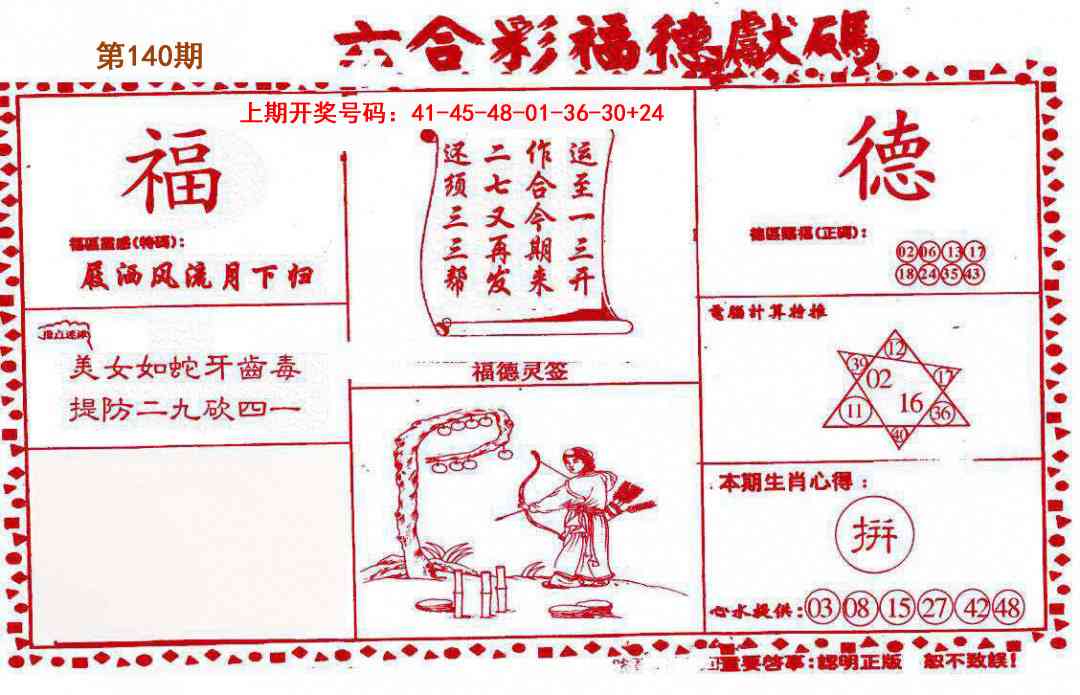 第140期
六合彩福德獻碼
上期开奖号码：41-45-48-01-36-30+24
福
福區靈感(特碼)：
屐洒风流月下归
美女如蛇牙齒毒
提防二九砍四一
运至一三开
作合今期来
二七又再发
还须三三帮
福德灵签
德
(正碼)：
02 06 13 17
18 24 35 43
電腦計算特推
12
39 02 17
11 16 36
40
本期生肖心得：
拼
心水提供：03 08 15 27 42 48
重要啓事：認明正版 恕不致誤！